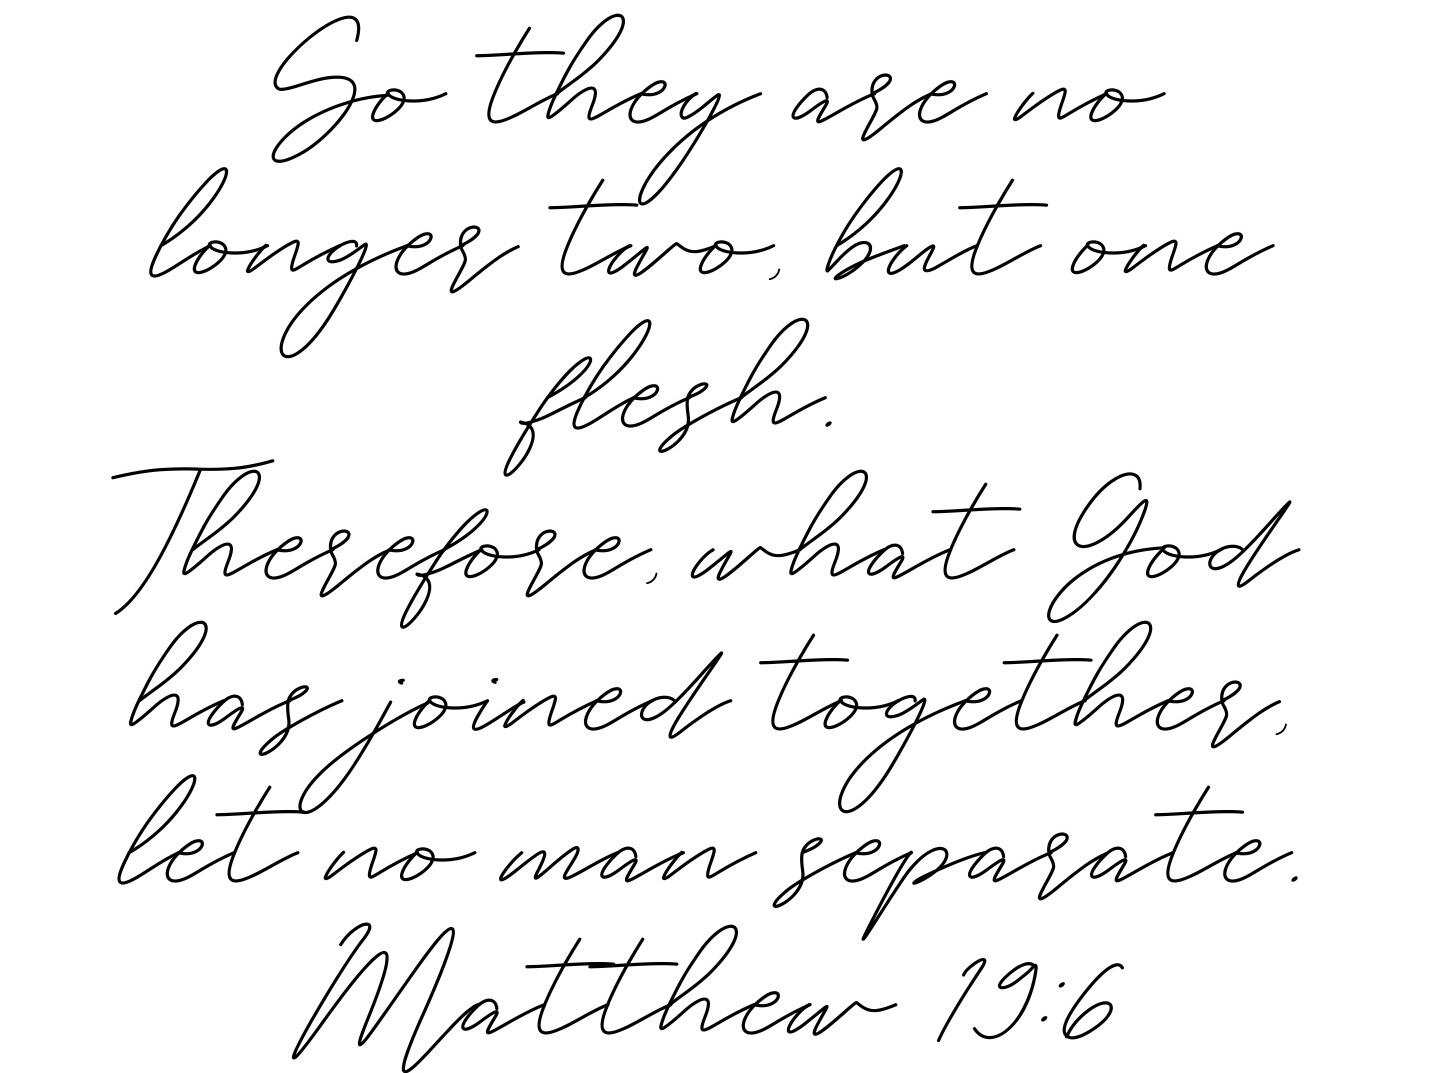 So they are no
longer two, but one
flesh.
Therefore, what God
has joined together,
let no man separate.
Matthew 19:6